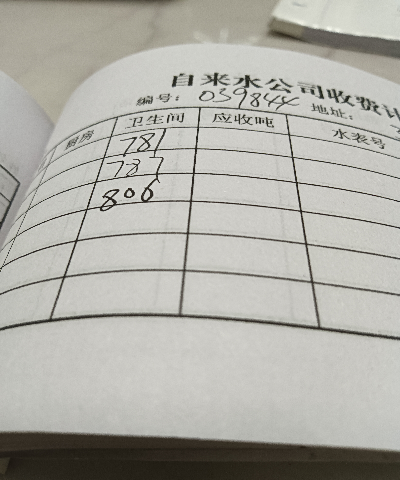 自来水公司收费
编号: 039844 地址:
厨房 卫生间 应收吨 水表号
781
787
806